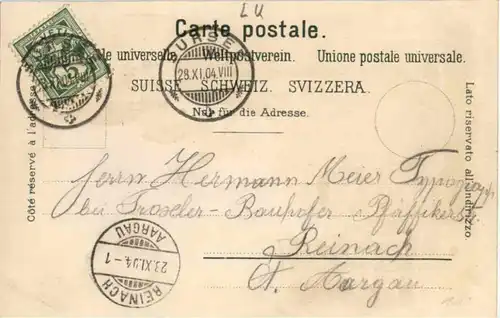 LU
Carte postale.
universelle Weltpostverein. Unione postale universale.
SUISSE. SCHWEIZ. SVIZZERA.
Nur für die Adresse.
Côté réservé à l'adresse.
Lato riservato all'indirizzo.
SURSEE
23.XI.04.VIII
Herrn Hermann Meier Typograph
bei Troxler-Bauhofer Pfäffikerstr.
Reinach
Ct. Aargau
AARGAU
23.XI.04-1
REINACH